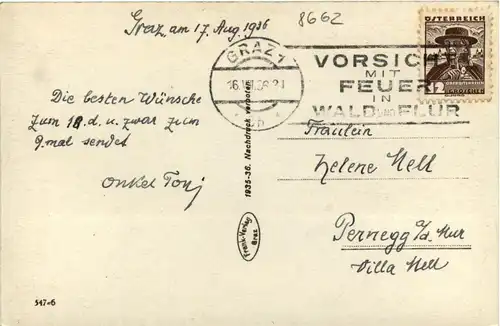 Graz, am 17. Aug. 1936
8662
ÖSTERREICH
12
GROSCHEN
GRAZ 1
VORSICHT
MIT
FEUER
IN
WALD und FLUR
Die besten Wünsche
zum 18. d. u. zwar zum
9. mal sendet
Onkel Tonj
1935-36. Nachdruck verboten
Frank-Verlag
Graz
Fräulein
Helene Nell
Pernegg a/d. Mur
Villa Nell
547-6